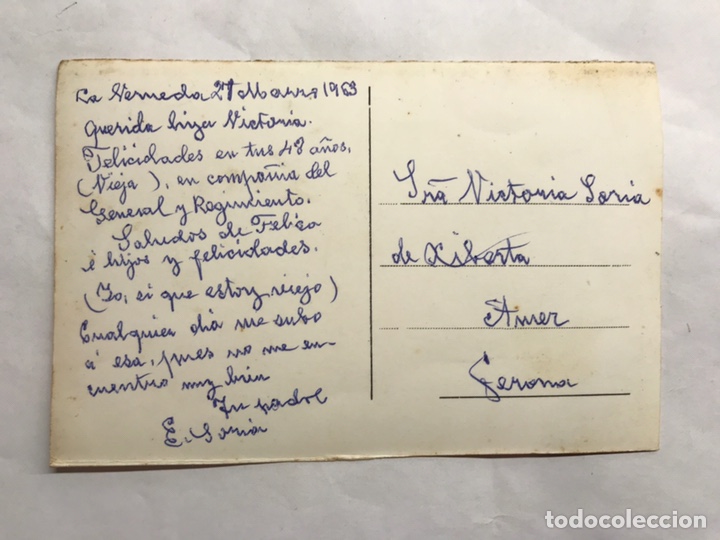 La Verneda 27 Marzo 1963
Querida hiza Victoria.
Felicidades en tus 48 años,
(Vieja), en compañia del
General y Regimiento.
Saludos de Felisa
é hijos y felicidades.
(Yo, si que estoy viejo)
Cualquier dia me subo
á esa, pues no me en-
cuentro muy bien
Tu padre
E. Soria
Sra Victoria Soria
de Xiberta
Amer
Gerona
todocoleccion